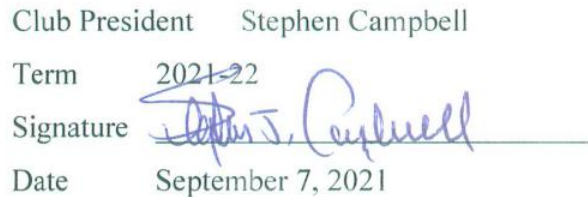 Club President Stephen Campbell
Term 2021-22
Signature Stephen J. Campbell
Date September 7, 2021